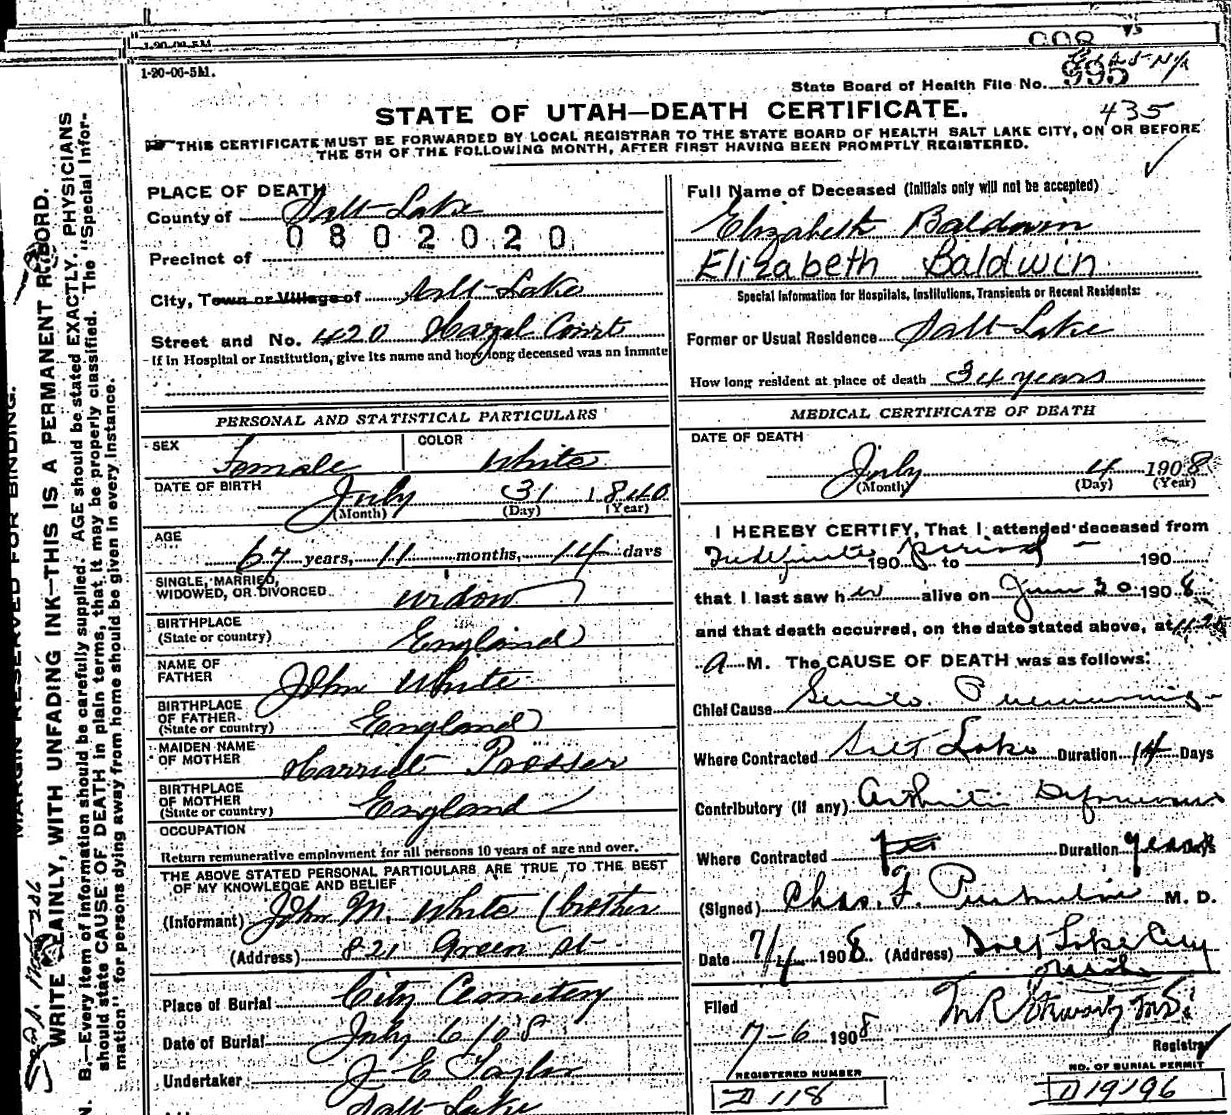 1-20-06-5M.
1-20-06-5M.
State Board of Health File No. 995
435
STATE OF UTAH—DEATH CERTIFICATE.
THIS CERTIFICATE MUST BE FORWARDED BY LOCAL REGISTRAR TO THE STATE BOARD OF HEALTH SALT LAKE CITY, ON OR BEFORE
THE 5TH OF THE FOLLOWING MONTH, AFTER FIRST HAVING BEEN PROMPTLY REGISTERED.
PLACE OF DEATH
County of Salt Lake
0802020
Precinct of
City, Town or Village of Salt Lake
Street and No. 420 Hazel Court
If in Hospital or Institution, give its name and how long deceased was an inmate
Full Name of Deceased (Initials only will not be accepted)
Elizabeth Baldwin
Elizabeth Baldwin
Special Information for Hospitals, Institutions, Transients or Recent Residents:
Former or Usual Residence Salt Lake
How long resident at place of death 34 years
PERSONAL AND STATISTICAL PARTICULARS
SEX Female COLOR White
DATE OF BIRTH July 31 1840
(Month) (Day) (Year)
AGE 67 years, 11 months, 14 days
SINGLE, MARRIED,
WIDOWED, OR DIVORCED widow
BIRTHPLACE
(State or country) England
NAME OF
FATHER John White
BIRTHPLACE
OF FATHER
(State or country) England
MAIDEN NAME
OF MOTHER Harriet Prosser
BIRTHPLACE
OF MOTHER
(State or country) England
OCCUPATION
Return remunerative employment for all persons 10 years of age and over.
THE ABOVE STATED PERSONAL PARTICULARS ARE TRUE TO THE BEST
OF MY KNOWLEDGE AND BELIEF
(Informant) John M. White (brother
(Address) 821 Green st
Place of Burial City Cemetery
Date of Burial July 6 1908
Undertaker J E Taylor
Salt Lake
MEDICAL CERTIFICATE OF DEATH
DATE OF DEATH
July 4 1908
(Month) (Day) (Year)
I HEREBY CERTIFY, That I attended deceased from
Indefinite period 190 to 190
that I last saw her alive on June 30 1908
and that death occurred, on the date stated above, at
A M. The CAUSE OF DEATH was as follows:
Chief Cause Senile Pneumonia
Where Contracted Salt Lake Duration 14 Days
Contributory (if any) Arthritis Deformans
Where Contracted Duration years Days
(Signed) Chas. F. M. D.
Date 7/4 1908 (Address) Salt Lake City
Utah
Filed
7-6 1908
Registrar
REGISTERED NUMBER
D 118
NO. OF BURIAL PERMIT
D 19196
MARGIN RESERVED FOR BINDING.
WRITE PLAINLY, WITH UNFADING INK—THIS IS A PERMANENT RECORD.
N. B.—Every item of information should be carefully supplied. AGE should be stated EXACTLY. PHYSICIANS
should state CAUSE OF DEATH in plain terms, that it may be properly classified. The "Special Infor-
mation" for persons dying away from home should be given in every instance.